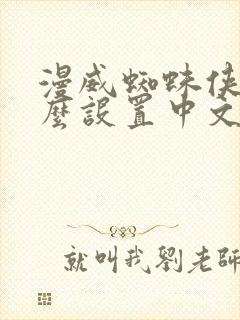 漫威蜘蛛俠
麼設置中文
就叫我劉老師